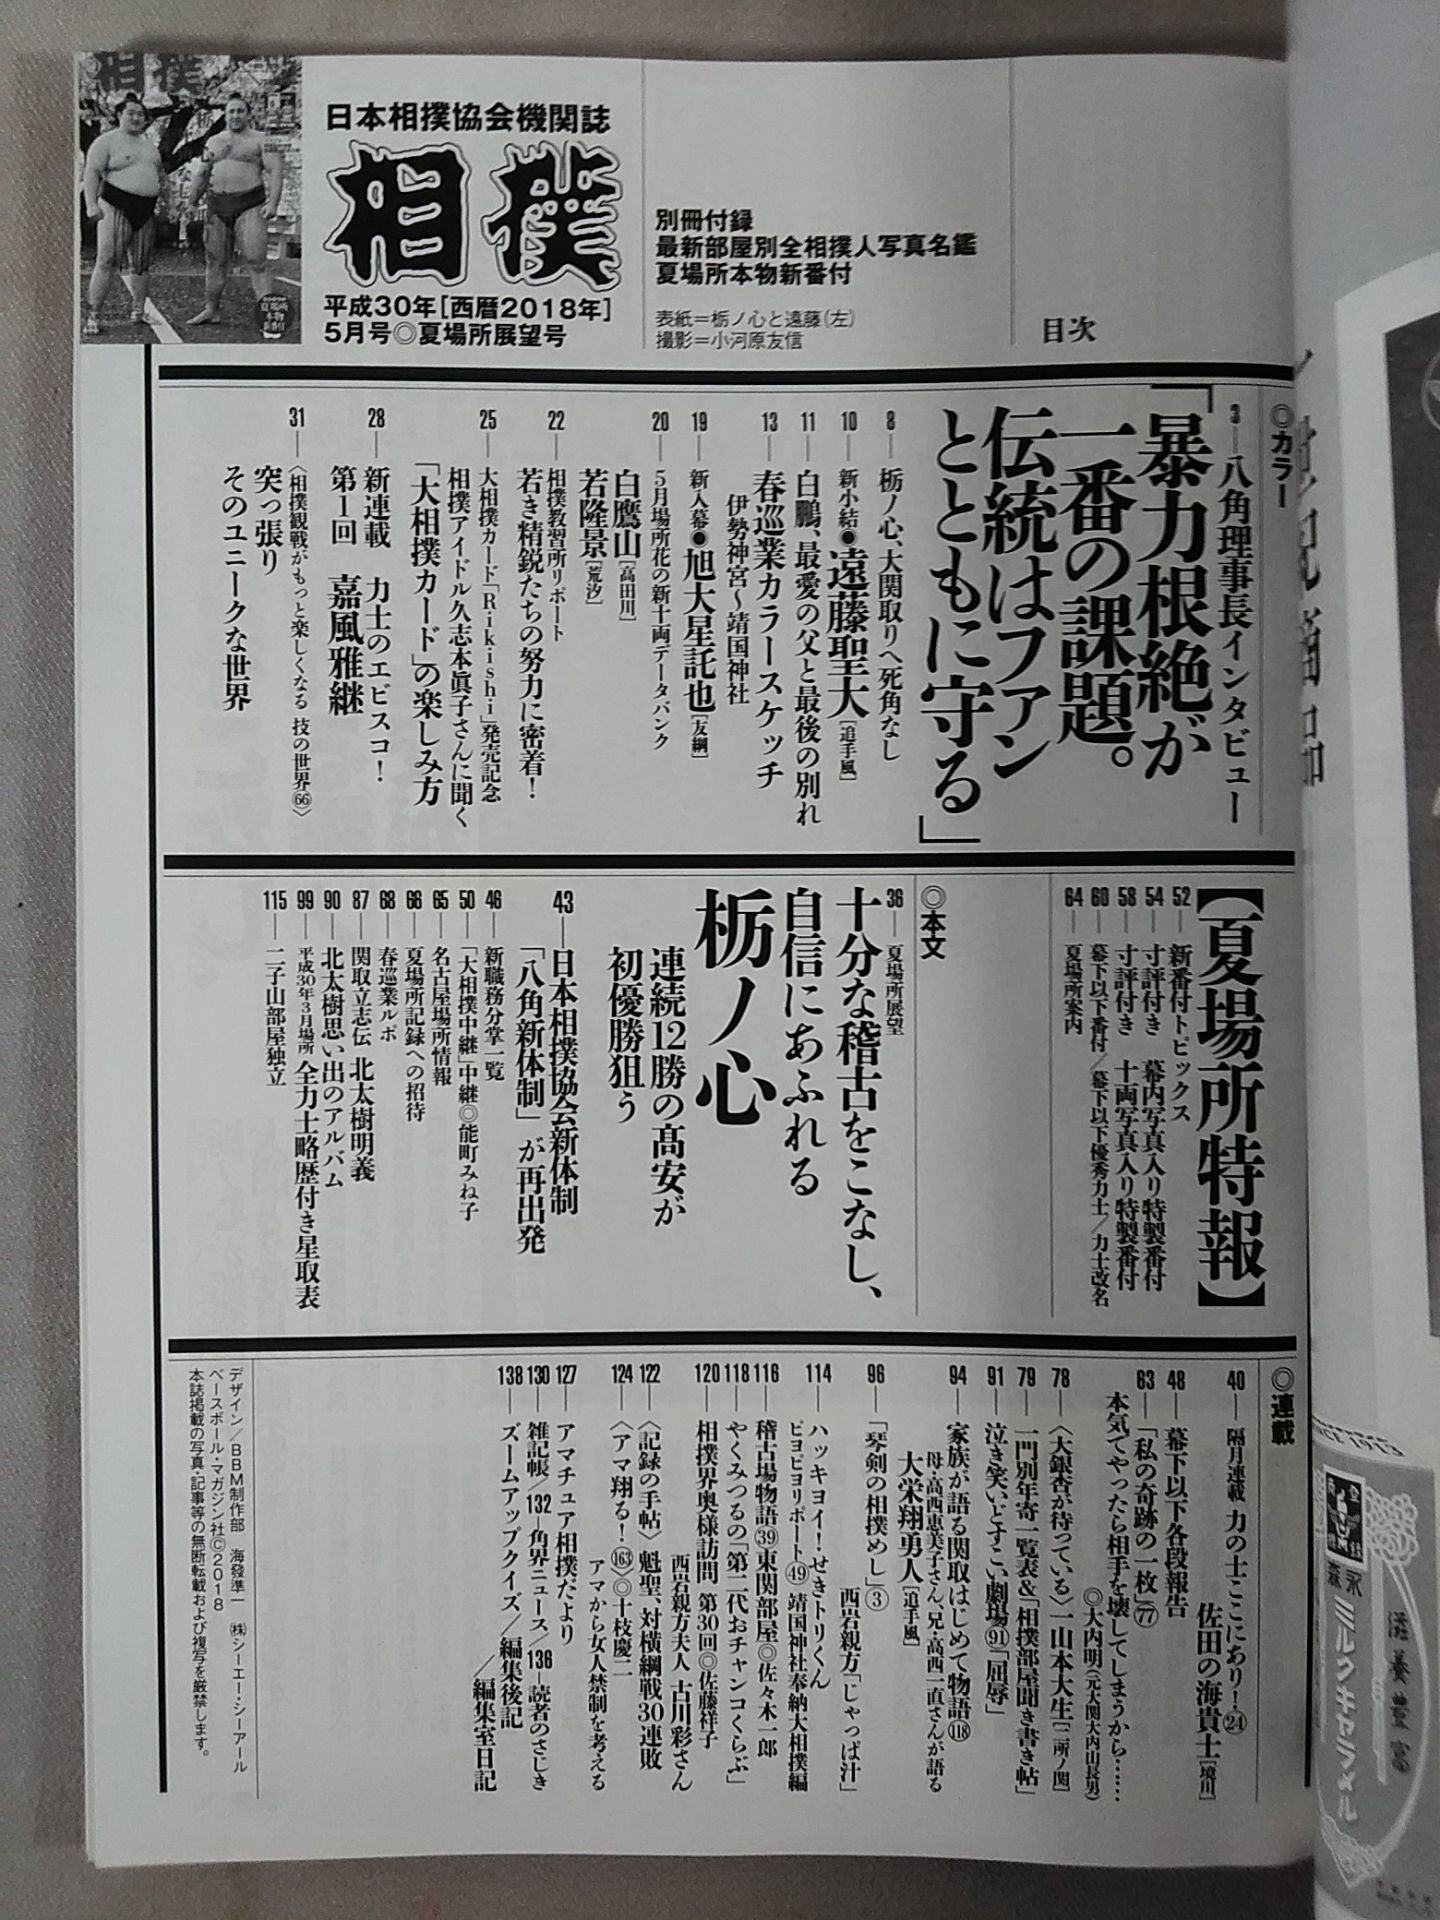 日本相撲協会機関誌
相撲
平成30年[西暦2018年]
5月号◎夏場所展望号
別冊付録
最新部屋別全相撲人写真名鑑
夏場所本物新番付
表紙＝栃ノ心と遠藤(左)
撮影＝小河原友信
目次
◎カラー
3―八角理事長インタビュー
「暴力根絶が
一番の課題。
伝統はファン
とともに守る」
8―栃ノ心、大関取りへ死角なし
10―新小結●遠藤聖大[追手風]
11―白鵬、最愛の父と最後の別れ
13―春巡業カラースケッチ
伊勢神宮～靖国神社
19―新入幕●旭大星託也[友綱]
20―5月場所花の新十両データバンク
白鷹山[高田川]
若隆景[荒汐]
22―相撲教習所リポート
若き精鋭たちの努力に密着！
25―大相撲カード「Rikishi」発売記念
相撲アイドル久志本眞子さんに聞く
「大相撲カード」の楽しみ方
28―新連載 力士のエビスコ！
第1回 嘉風雅継
31―〈相撲観戦がもっと楽しくなる 技の世界66〉
突っ張り
そのユニークな世界
【夏場所特報】
52―新番付トピックス
54―寸評付き 幕内写真入り特製番付
58―寸評付き 十両写真入り特製番付
60―幕下以下番付／幕下以下優秀力士／力士改名
64―夏場所案内
◎本文
36―夏場所展望
十分な稽古をこなし、
自信にあふれる
栃ノ心
連続12勝の髙安が
初優勝狙う
43―日本相撲協会新体制
「八角新体制」が再出発
46―新職務分掌一覧
50―「大相撲中継」中継◎能町みね子
65―名古屋場所情報
66―夏場所記録への招待
68―春巡業ルポ
87―関取立志伝 北太樹明義
90―北太樹思い出のアルバム
99―平成30年3月場所 全力士略歴付き星取表
115―二子山部屋独立
◎連載
40―隔月連載 力の士ここにあり！24
佐田の海貴士[境川]
48―幕下以下各段報告
63―「私の奇跡の一枚」77
本気でやったら相手を壊してしまうから……
◎大内明(元大関大内山長男)
78―〈大銀杏が待っている〉一山本大生[二所ノ関]
79―一門別年寄一覧表&「相撲部屋聞き書き帖」
91―泣き笑いどすこい劇場91「屈辱」
94―家族が語る関取はじめて物語118
母・高西恵美子さん、兄・高西一直さんが語る
大栄翔勇人[追手風]
96―「琴剣の相撲めし」3
西岩親方「じゃっぱ汁」
114―ハッキヨイ！せきトリくん
ピヨピヨリポート49 靖国神社奉納大相撲編
116―稽古場物語39東関部屋◎佐々木一郎
118―やくみつるの「第二代おチャンコくらぶ」
120―相撲界奥様訪問 第30回◎佐藤祥子
西岩親方夫人 古川彩さん
122―〈記録の手帖〉魁聖、対横綱戦30連敗
124―〈アマ翔る！163〉◎十枝慶二
アマから女人禁制を考える
127―アマチュア相撲だより
130―雑記帳／132―角界ニュース／136―読者のさじき
138―ズームアップクイズ／編集後記
／編集室日記
デザイン／BBM制作部 海發準一 ㈱シーエー・シーアール
ベースボール・マガジン社©2018
本誌掲載の写真・記事等の無断転載および複写を厳禁します。
滋養豊富
森永
ミルクキャラメル